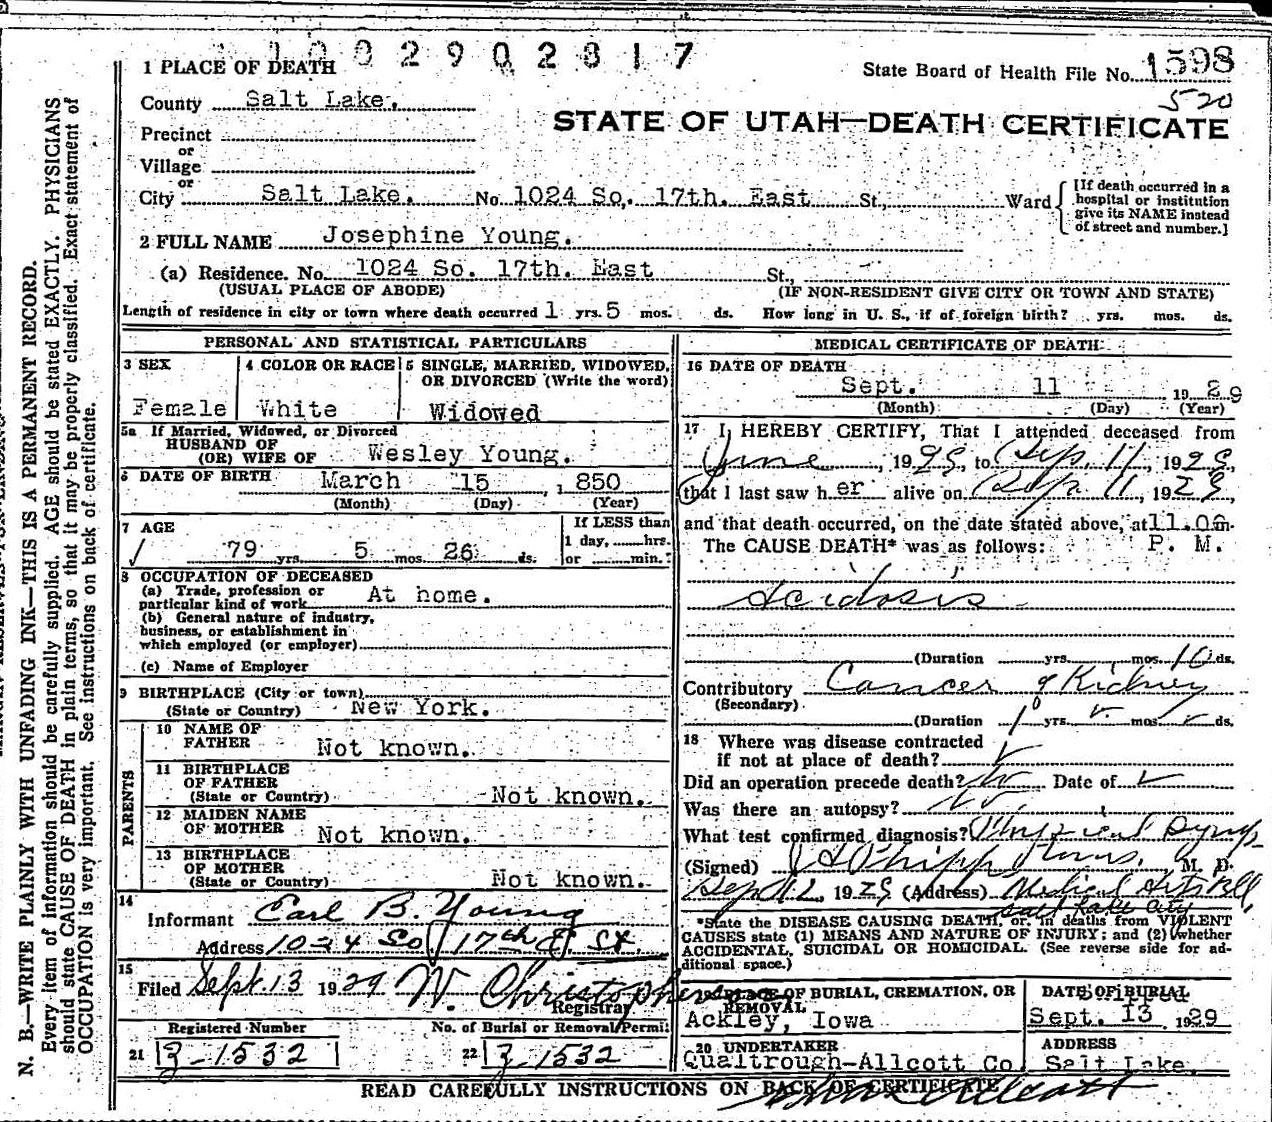 1 0 0 2 9 0 2 8 1 7
1 PLACE OF DEATH
State Board of Health File No. 1598
520
County Salt Lake.
STATE OF UTAH—DEATH CERTIFICATE
Precinct
or
Village
or
City Salt Lake. No. 1024 So. 17th. East St., Ward
[If death occurred in a
hospital or institution
give its NAME instead
of street and number.]
2 FULL NAME Josephine Young.
(a) Residence. No. 1024 So. 17th. East St.,
(USUAL PLACE OF ABODE) (IF NON-RESIDENT GIVE CITY OR TOWN AND STATE)
Length of residence in city or town where death occurred 1 yrs. 5 mos. ds. How long in U. S., if of foreign birth? yrs. mos. ds.
PERSONAL AND STATISTICAL PARTICULARS
3 SEX
Female
4 COLOR OR RACE
White
5 SINGLE, MARRIED, WIDOWED,
OR DIVORCED (Write the word)
Widowed
5a If Married, Widowed, or Divorced
HUSBAND OF
(OR) WIFE OF Wesley Young.
6 DATE OF BIRTH March 15, 1850
(Month) (Day) (Year)
7 AGE
79 yrs. 5 mos. 26 ds.
If LESS than
1 day, hrs.
or min.
8 OCCUPATION OF DECEASED
(a) Trade, profession or
particular kind of work At home.
(b) General nature of industry,
business, or establishment in
which employed (or employer)
(c) Name of Employer
9 BIRTHPLACE (City or town)
(State or Country) New York.
PARENTS
10 NAME OF
FATHER Not known.
11 BIRTHPLACE
OF FATHER
(State or Country) Not known.
12 MAIDEN NAME
OF MOTHER Not known.
13 BIRTHPLACE
OF MOTHER
(State or Country) Not known.
14
Informant Earl B. Young
Address 1024 So 17th E St
15
Filed Sept. 13 1929 W. Christopherson
Registrar
Registered Number No. of Burial or Removal Permit
21 Z-1532 22 Z-1532
MEDICAL CERTIFICATE OF DEATH
16 DATE OF DEATH
Sept. 11 1929
(Month) (Day) (Year)
17 I HEREBY CERTIFY, That I attended deceased from
June, 1929, to Sep. 11, 1929,
that I last saw her alive on Sep 11, 1929,
and that death occurred, on the date stated above, at 11.00 m.
The CAUSE DEATH* was as follows: P. M.
Acidosis
(Duration yrs. mos. 10 ds.
Contributory Cancer of Kidney
(Secondary)
(Duration 1 yrs. mos. ds.
18 Where was disease contracted
if not at place of death?
Did an operation precede death? No Date of
Was there an autopsy? No.
What test confirmed diagnosis? Physical Symp
(Signed) M. D.
Sept 12 1929 (Address) Medical Arts Bld,
Salt Lake City
*State the DISEASE CAUSING DEATH, or, in deaths from VIOLENT
CAUSES state (1) MEANS AND NATURE OF INJURY; and (2) whether
ACCIDENTAL, SUICIDAL OR HOMICIDAL. (See reverse side for ad-
ditional space.)
19 PLACE OF BURIAL, CREMATION, OR
REMOVAL
Ackley, Iowa
DATE OF BURIAL
Shipped
Sept. 13 1929
20 UNDERTAKER
Qualtrough-Allcott Co
ADDRESS
Salt Lake.
READ CAREFULLY INSTRUCTIONS ON BACK OF CERTIFICATE
N. B.—WRITE PLAINLY WITH UNFADING INK—THIS IS A PERMANENT RECORD.
Every item of information should be carefully supplied. AGE should be stated EXACTLY. PHYSICIANS
should state CAUSE OF DEATH in plain terms, so that it may be properly classified. Exact statement of
OCCUPATION is very important. See instructions on back of certificate.